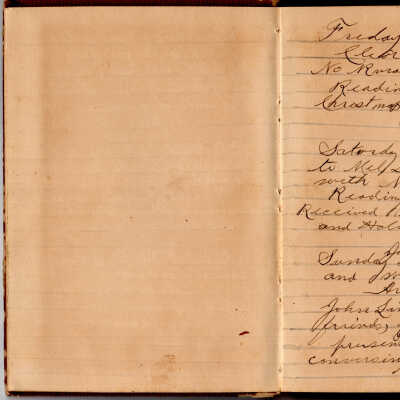 Friday
Clear
No Rura
Readin
Christmas
Saturday
to Mel
with N
Reading
Received
and Hol
Sunday
and
John Lin
friends,
presen
conversing